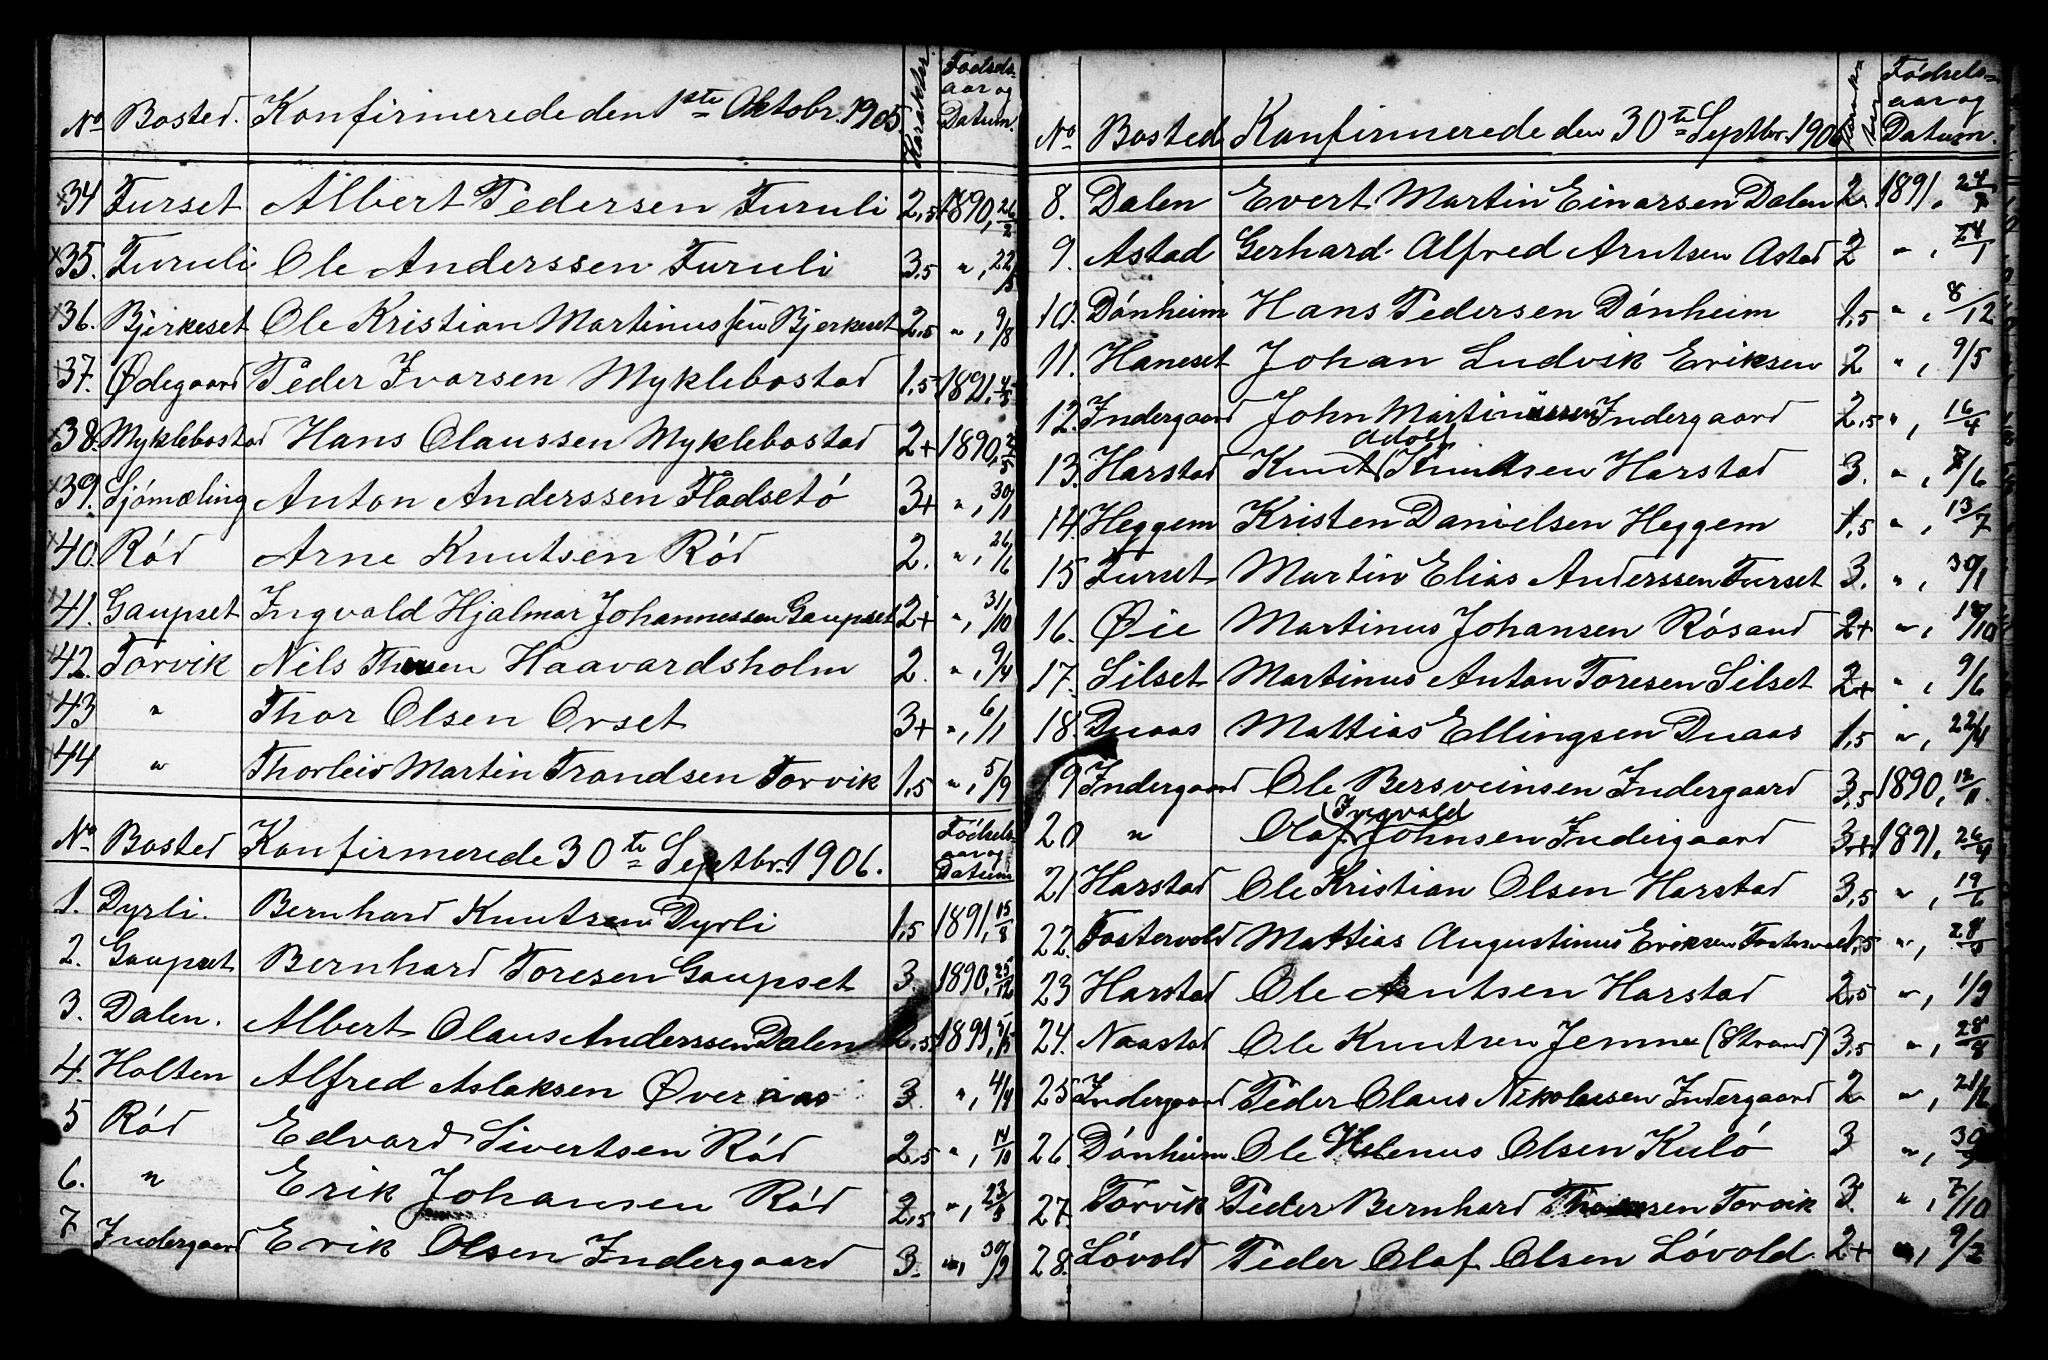 No Bosted. Konfirmerede den 1ste Oktobr. 1905 Karakter. Fødsels- aar og Datum.
34 Furset Albert Pedersen Furuli 2,5 1890, 26/2
35. Furuli Ole Anderssen Furuli 3,5 ", 22/5
36. Bjerkeset Ole Kristian Martinussen Bjerkeset 2,5 ", 9/8
37. Ødegaard Peder Ivarsen Myklebostad 1,5 1891, 4/5
38. Myklebostad Hans Olaussen Myklebostad 2+ 1890,
39. Sjómæling Anton Anderssen Fladsetó 3+ ", 30/1
40. Ród Arne Knutsen Ród 2. ", 26/6
41. Gaupset Ingvald Hjalmar Johannessen Gaupset 2+ ", 31/10
42. Torvik Nils Haavardsholm 2. ", 9/4
43 " Thor Olsen Orset 3+ ", 6/1
44 " Thorleiv Martin Trondsen Torvik 1,5 ", 5/9
No Bosted Konfirmerede 30te Septbr. 1906. Fødsels- aar og Datum
1. Dyrli. Bernhard Knutsen Dyrli 1,5 1891, 15/8
2. Gaupset Bernhard Toresen Gaupset 3. 1890, 25/12
3. Dalen. Albert Olaus Anderssen Dalen 2,5 1891,
4. Holten Alfred Aslaksen Øveraas 3. ", 4/4
5 Ród Edvard Sivertsen Ród 2,5 ", 14/10
6. " Erik Johansen Ród 2,5 ",
7 Indergaard Erik Olsen Indergaard 3. ", 30/9
No Bosted Konfirmerede den 30te Septbr. 1906 Fødsels- aar og Datum.
8. Dalen Evert Martin Einarsen Dalen 2. 1891,
9. Astad Gerhard Alfred Arntsen Astad 2 ", 24/1
10. Dónheim Hans Pedersen Dónheim 1,5 ", 8/12
11. Haneset Johan Ludvik Eriksen 2 ", 9/5
12. Indergaard John Martinussen Indergaard 2,5 ", 16/4
13. Harstad Knut Adolf Knutsen Harstad 3. ",
14. Heggem Kristen Danielsen Heggem 1,5 ", 13/7
15 Furset Martin Elias Anderssen Furset 3. ", 30/1
16. Øie Martinus Johansen Rósand 2+ ",
17. Silset Martinus Anton Toresen Silset 2+ ", 9/6
18. Duaas Mattias Ellingsen Duaas 1,5 ", 22/4
19 Indergaard Ole Bersveinsen Indergaard 3,5 1890, 12/11
20 " Olaf Ingvald Johnsen Indergaard 3+ 1891, 26/4
21 Harstad Ole Kristian Olsen Harstad 3,5 ", 19/6
22. Fostervold Mattias Augustinus Eriksen Fostervold 1,5 ", 28/5
23 Harstad Ole Arntsen Harstad 2,5 ", 1/9
24. Naastad Ole Knutsen Jemne (Strand) 3,5 ", 28/8
25 Indergaard Peder Olaus Nikolaisen Indergaard 2 ", 21/6
26. Dónheim Ole Helenus Olsen Kuló 3 ",
27. Torvik Peder Bernhard Torvik 3. ", 7/10
28. Lóvold Peder Olaf Olsen Lóvold. 2+ ", 9/2